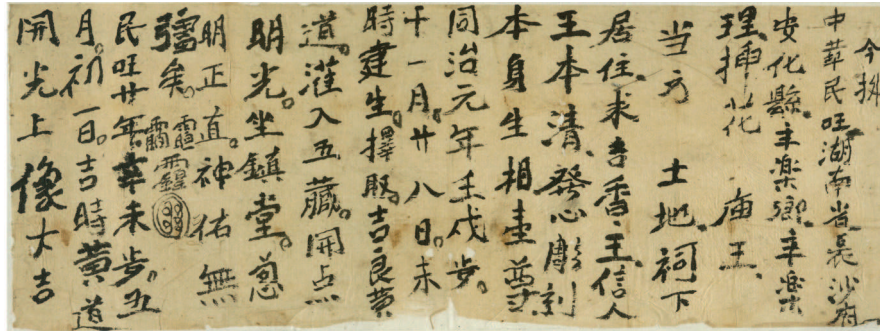 今据
中華民旺湖南省長沙府
安化縣丰楽鄉丰楽
理揷花　庙王
当方　土地祠下
居住求吉香王信人
王本清發心彫刻
本身生相壹尊
同治元年壬戌步
十一月廿八日未
時建生擇取吉良黄
道灌入五藏開点
明光坐鎮堂
明正直神佑無
彊矣
民旺廿年辛未步五
月初一日吉時黄道
開光上像大吉